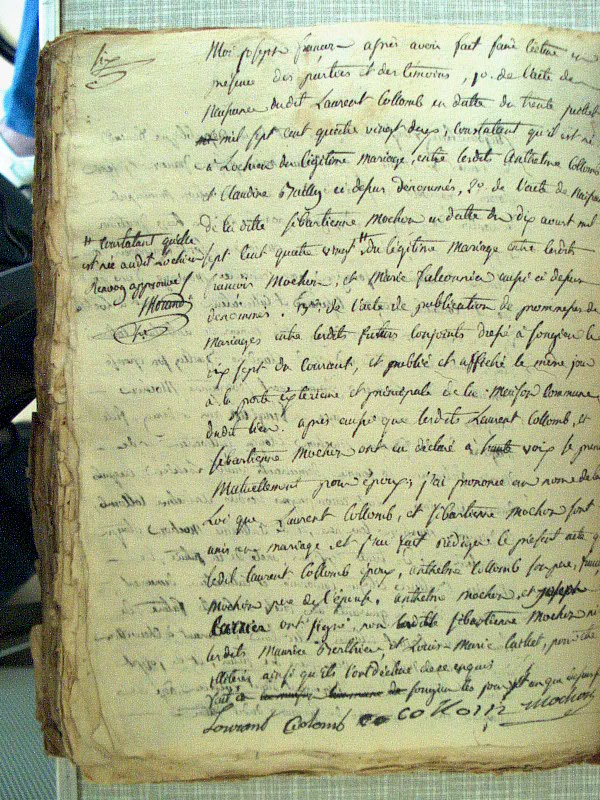 six
Moi joseph françois après avoir fait faire lecture en
présence des parties et des temoins, 1o. de l'acte de
Naissance dudit Laurent Collomb en datte du trente juillet
mil sept cent quatre vingt deux, constatant qu'il est né
à Lochieu du légitime mariage, entre lesdits Anthelme Collomb
et Claudine Bailly ci depus denommés, 2o. de l'acte de Naissance
de la ditte sébastienne Mochon en datte du Dix aoust mil
sept cent quatre vingt # du légitime mariage entre lesdits
# constatant qu'elle
est née audit Lochieu
Renvoy approuvé
Morand
françois Mochon, et Marie falconnier aussi ci depus
denommés. 3o. de l'acte de publication de promesses de
Mariages entre lesdits futurs conjoints dressé à songieu le
dix sept du courant, et publié et affiché le même jour
à la porte extérieure et principale de la Maison Commune
dudit lieu. après aussi que lesdits Laurent Collomb, et
sébastienne Mochon ont eu déclaré a haute voix se prendre
Mutuellement pour époux, j'ai prononcé au nom de la
Loi que Laurent Collomb, et sébastienne mochon sont
unis en mariage, et j'en fait rédiger le présent acte q
ledit laurent Collomb époux, anthelme Collomb son pere,
Mochon pere de l'épouse, anthelme mochon, et joseph
Carrier ont signé, non sébastienne Mochon ni
lesdits Maurice Berthier et Louis Marie Carlet, pour être
illiterés ainsi qu'ils l'ont déclaré de ce enquis
fait à songieu les jour et an que dessus
Lourant Colomb collom mochon